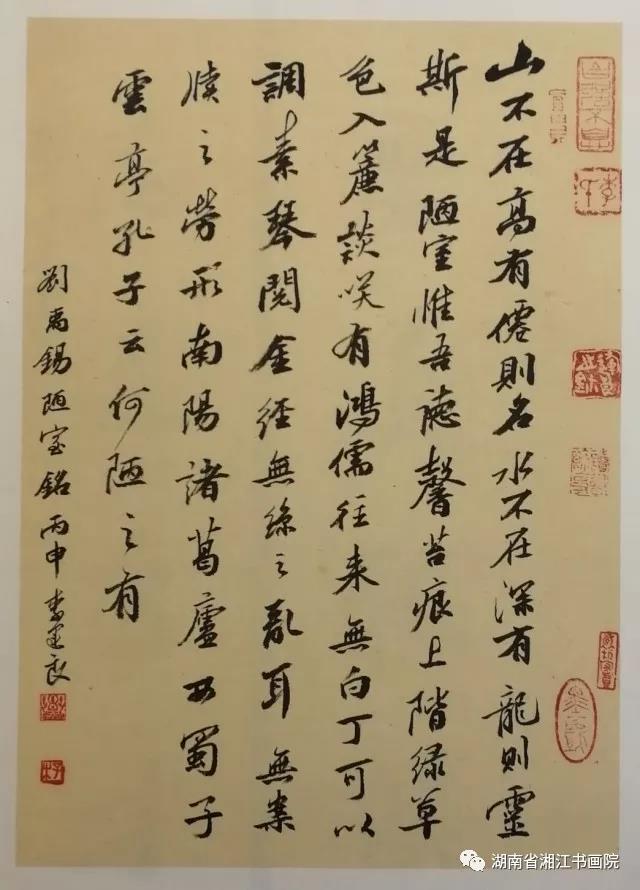 山不在高有僊則名水不在深有龍則靈
斯是陋室惟吾德馨苔痕上階緑草
色入簾談咲有鴻儒往来無白丁可以
調素琴閲金經無絲之亂耳無案
牘之勞形南陽諸葛廬西蜀子
雲亭孔子云何陋之有
劉禹錫陋室銘丙申李建良
湖南省湘江书画院